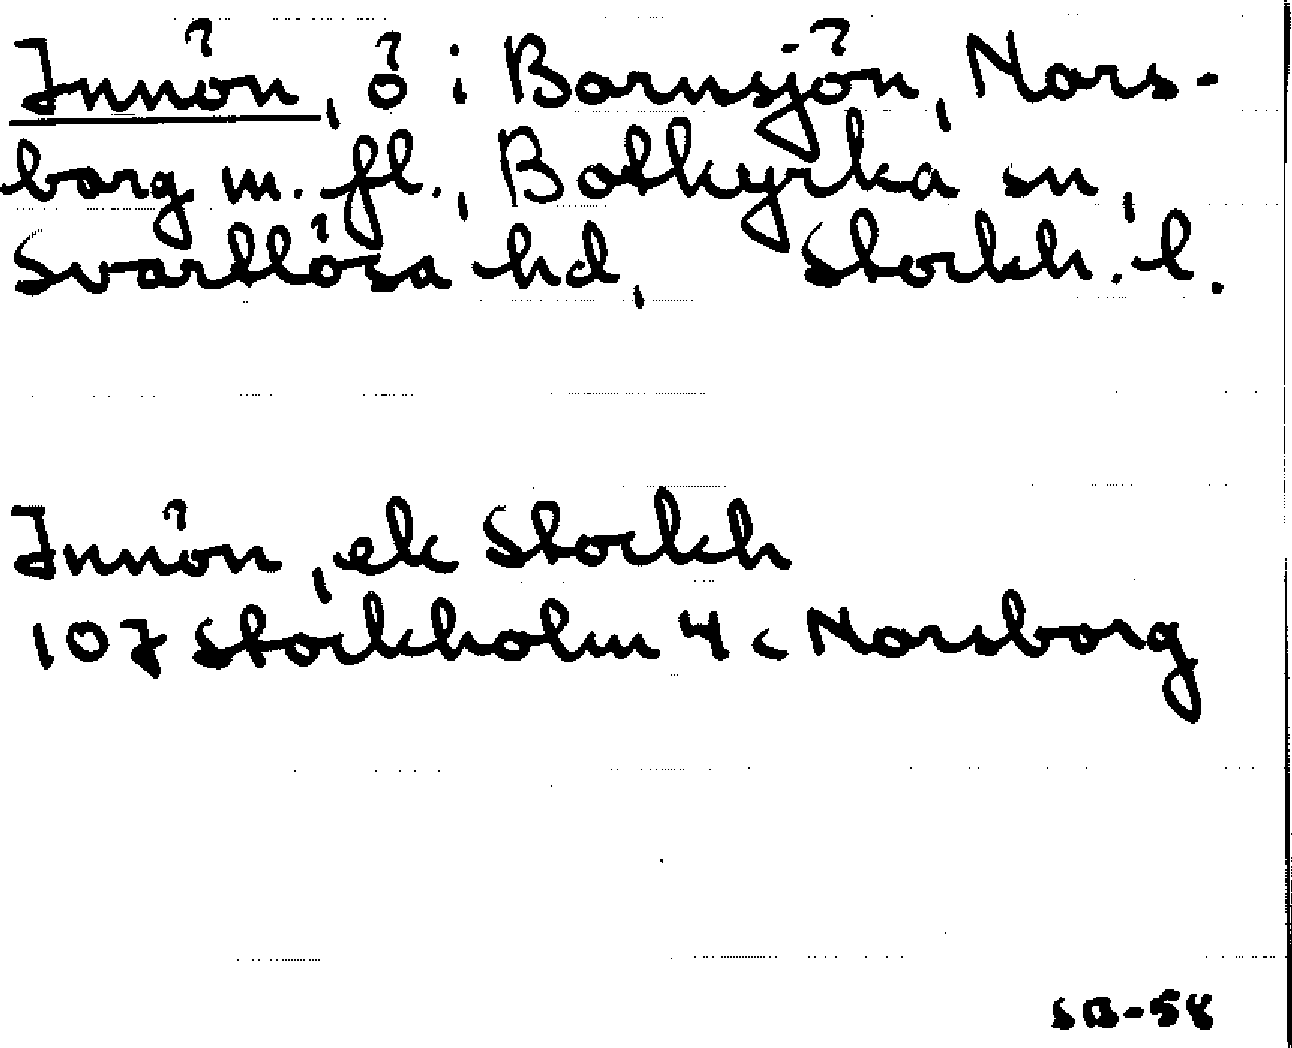 Innön, ö i Bornsjön, Nors-
borg m. fl., Botkyrka sn,
Svartlösa hd, Stockh. l.
Innön, ek Stockh
107 Stockholm 4 c Norsborg
SB-58